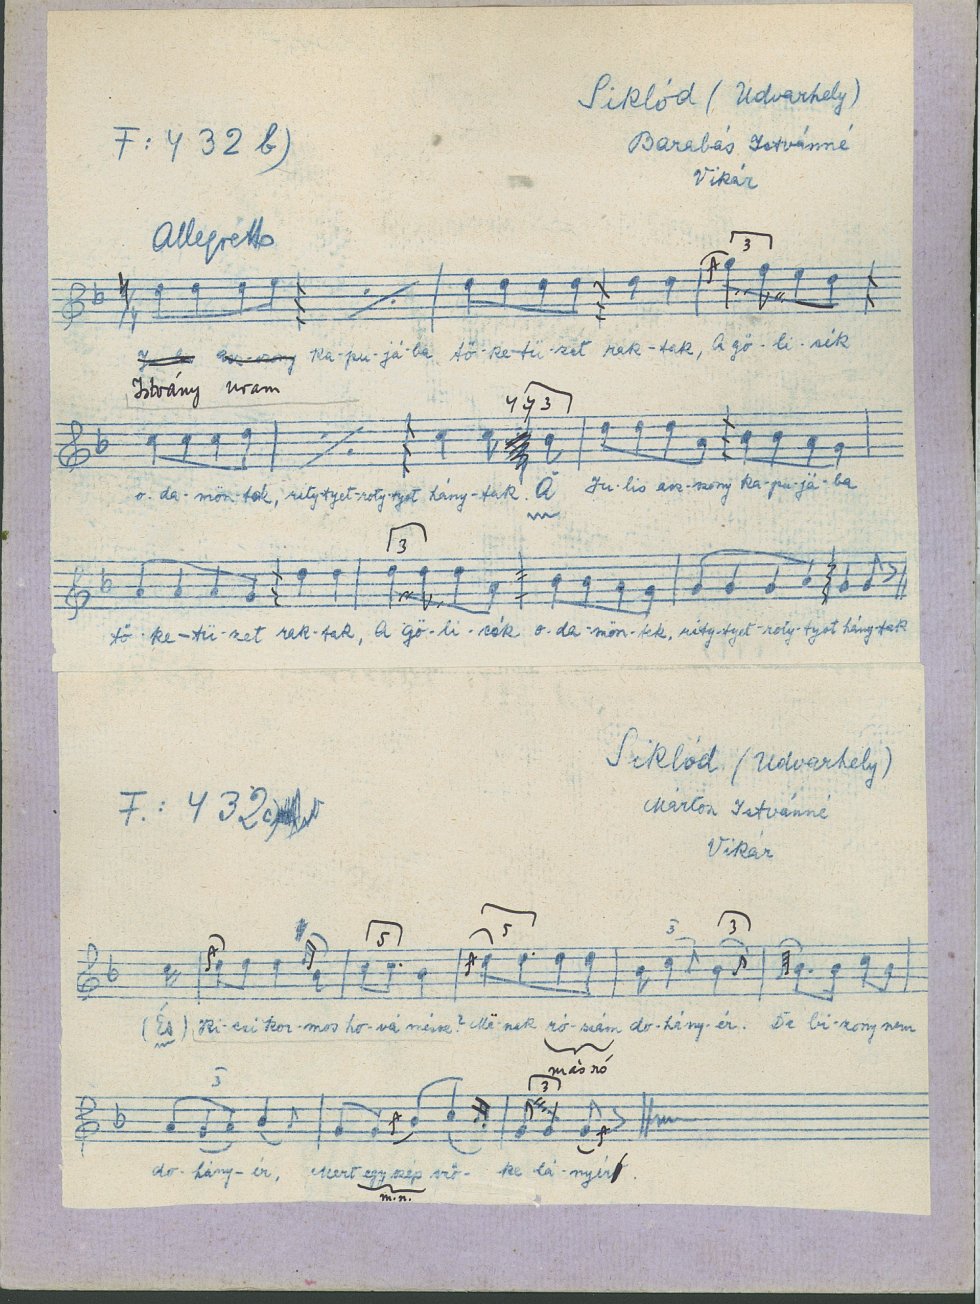 Siklód (Udvarhely)
F: 432 b)
Barabás Istvánné
Vikár
Allegretto
3
ka-pu-já-ba tö-ke-tü-zet rak-tak, A gö-li-cék
István uram
3
o-da-mön-tek, rity-tyet-roty-tyot hány-tak. A Ju-lis asz-szony ka-pu-já-ba
3
tö-ke-tü-zet rak-tak, A gö-li-cék o-da-mön-tek, rity-tyet-roty-tyot hány-tak
Siklód (Udvarhely)
F.: 432 c)
Márton Istvánné
Vikár
5 5 3 3
(És) Ki-csi kor-mos ho-vá mész? Më-nek ró-zsám do-hány-ér. De bi-zony nem
más szó
3 3
do-hány-ér, Mert egy szép sző-ke lá-nyér.
m.n.